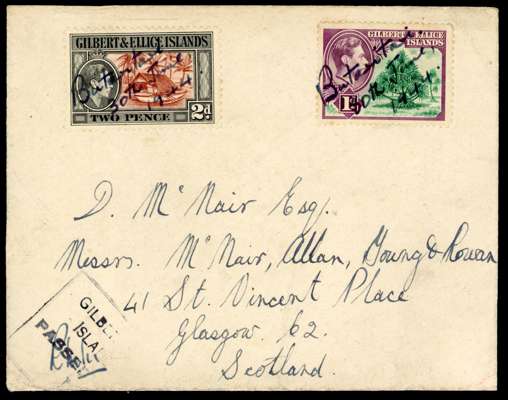 GILBERT & ELLICE ISLANDS
Butaritari
30th June
1944.
TWO PENCE 2d
GILBERT & ELLICE
ISLANDS
Butaritari
30th June
1944.
1d
D. McNair Esq.
Messrs. McNair, Allan, Young & Rowan
41 St. Vincent Place
Glasgow C2.
Scotland.
GILBE
ISLA
PASSE